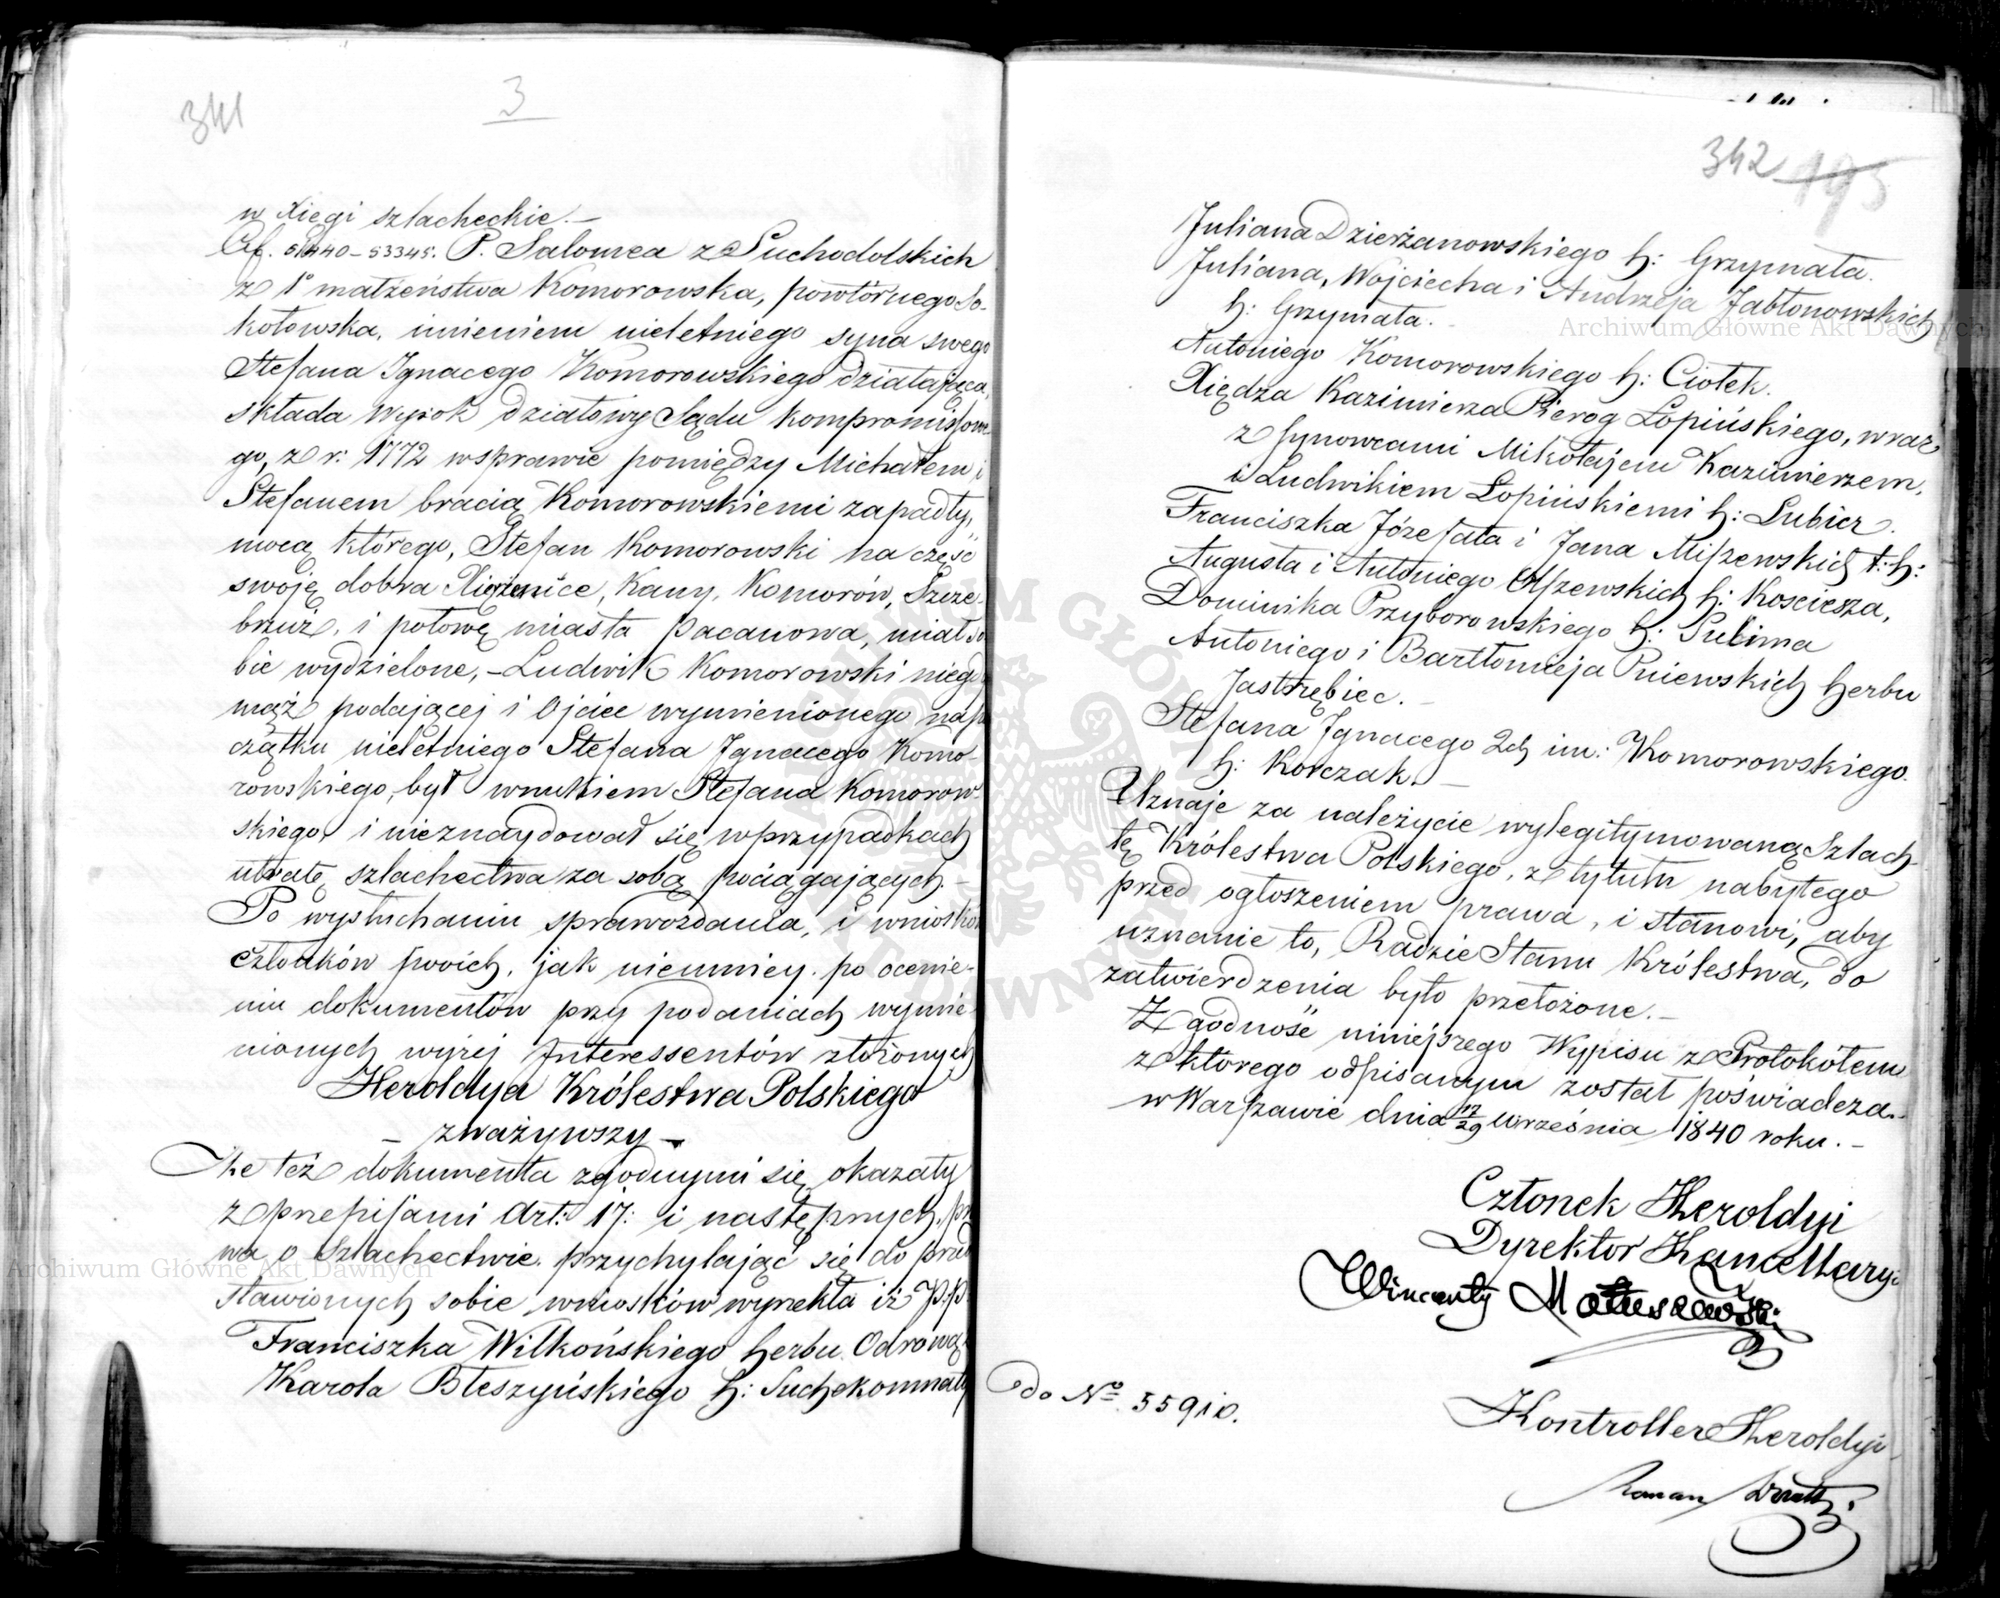 341
3
w Xięgi szlacheckie. —
P. Salomea z Suchodolskich
z 1° małżeństwa Komorowska, powtórnego So-
kołowska, imieniem nieletniego syna swego
Stefana Ignacego Komorowskiego działająca,
składa wyrok działowy Sądu kompromissowe
go, z r: 1772 w sprawie pomiędzy Michałem i
Stefanem bracią Komorowskiemi zapadły,
mocą którego, Stefan Komorowski na część
swoję dobra Xiążnice, Kany, Komorów, Szcze-
brzuż, i połowę miasta Pacanowa, miał so
bie wydzielone, – Ludwik Komorowski niegdy
mąż podającej i Ojciec wymienionego na p
czątku nieletniego Stefana Ignacego Komo-
rowskiego, był wnukiem Stefana Komorow-
skiego i nieznaydował się w przypadkach
utratę szlachectwa za sobą pociągających. —
Po wysłuchaniu sprawozdania, i wniosków
członków swoich, jak niemniey po ocenie-
niu dokumentów przy podaniach wymie-
nionych wyżej Interessentów złożonych
Heroldya Królestwa Polskiego
— zważywszy —
Że też dokumenta zgodnymi się okazały
z przepisami Art: 17: i następnych, pra
wa o szlachectwie, przychylając się do przed
stawionych sobie wniosków wyrzekła iż P:P:
Franciszka Wilkońskiego herbu Odrowąż
Karola Błeszyńskiego h: Suchekomnaty
342 195
Juliana Dzierżanowskiego h: Grzymała.
Juliana, Wojciecha i Andrzeja Jabłonowskich
h: Grzymała.
Antoniego Komorowskiego h: Ciołek.
Xiędza Kazimierza Pierog Łopińskiego, wraz
z synowcami Mikołajem Kazimierzem,
i Ludwikiem Łopińskiemi h: Lubicz.
Franciszka Józefata i Jana Miszewskich t: h:
Augusta i Antoniego Olszewskich h: Kościesza,
Dominika Przyborowskiego h: Sulima
Antoniego i Bartłomieja Pniewskich herbu
Jastrzębiec. —
Stefana Ignacego 2ch im: Komorowskiego
h: Korczak. —
Uznaje za należycie wylegitymowaną Szlach-
tę Królestwa Polskiego, z tytułu nabytego
przed ogłoszeniem prawa, i stanowi, aby
uznanie to, Radzie Stanu Królestwa, do
zatwierdzenia było przełożone. —
Zgodność niniejszego Wypisu z Protokółem
z którego odpisanym został poświadcza. —
w Warszawie dnia 17/29 Września 1840 roku. —
Członek Heroldyi
Dyrektor Kancellaryi
Wincenty Matuszewski
do No. 55910.
Kontroller Heroldyi
Roman
Archiwum Główne Akt Dawnych
Archiwum Główne Akt Dawnych
ARCHIWUM GŁÓWNE AKT DAWNYCH